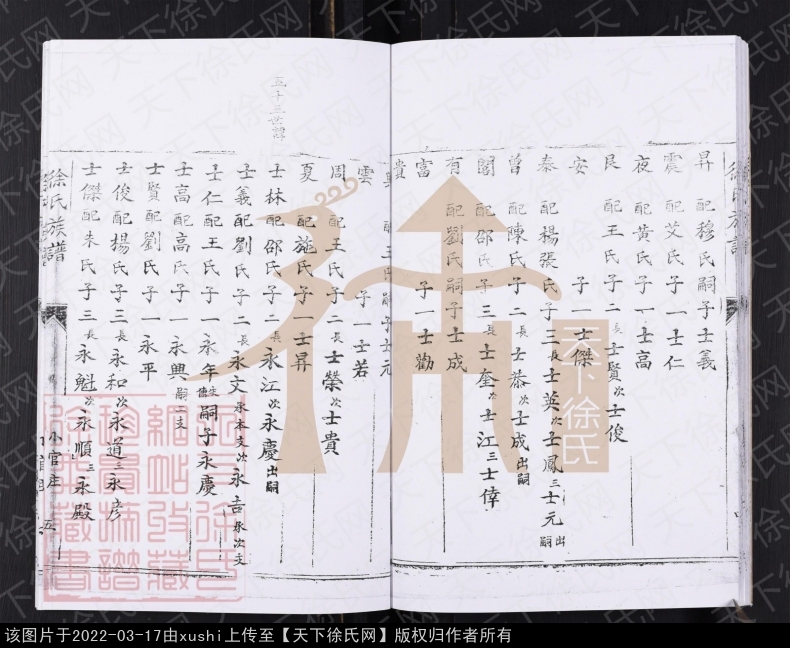 徐氏族譜
昇 配穆氏嗣子士義
震 配艾氏子一士仁
夜 配黃氏子一士高
艮 配王氏子二長士賢次士俊
安 子一士傑
泰 配楊張氏子三長士英次士鳳三士元出嗣
曾 配陳氏子二長士恭次士成出嗣
閣 配邵氏子三長士奎次士江三士倖
有 配劉氏嗣子士成
富 子一士勸
貴
配王氏嗣子士元
雲 子一士若
周 配王氏子二長士榮次士貴
夏 配施氏子一士昇
五十三世譜
士林配邵氏子二長永江次永慶出嗣
士義配劉氏子二長永文承本支次永吉承次支
士仁配王氏子一永年嗣子永慶
士高配高氏子一永興嗣二支
士賢配劉氏子一永平
士俊配楊氏子三長永和次永道三永彦
士傑配朱氏子三長永魁次永順三永殿
徐氏族譜
小官庄
五
天下徐氏
天下徐氏网
该图片于2022-03-17由xushi上传至【天下徐氏网】版权归作者所有